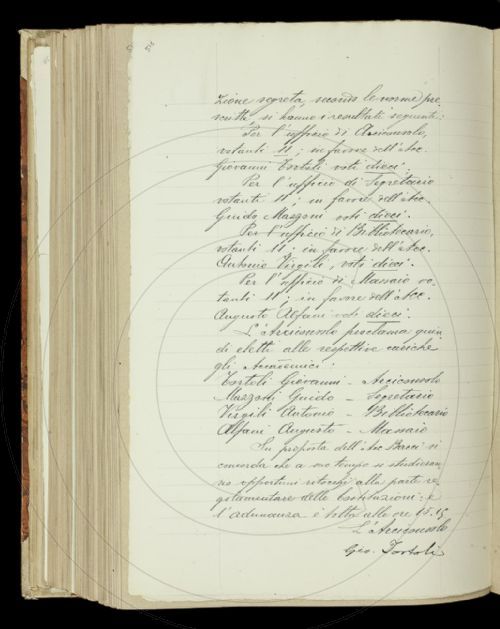 zione segreta, secondo le norme pre
scritte, si hanno i resultati seguenti:
Per l'ufficio di Arciconsolo,
votanti 11; in favore dell'Acc.
Giovanni Tortoli voti dieci.
Per l'ufficio di Segretario
votanti 11; in favore dell'Acc.
Guido Mazzoni voti dieci.
Per l'ufficio di Bibliotecario,
votanti 11; in favore dell'Acc.
Antonio Virgili, voti dieci.
Per l'ufficio di Massaio vo-
tanti 11; in favore dell'Acc.
Augusto Alfani voti dieci.
L'Arciconsolo proclama quin
di eletti alle respettive cariche
gli Accademici:
Tortoli Giovanni - Arciconsolo
Mazzoni Guido - Segretario
Virgili Antonio - Bibliotecario
Alfani Augusto - Massaio
Su proposta dell'Acc. Bacci si
concorda che a suo tempo si studieran
no opportuni ritocchi alla parte re
golamentare delle Costituzioni: e
l'adunanza è sciolta alle ore 15.15
L'Arciconsolo
Gio. Tortoli